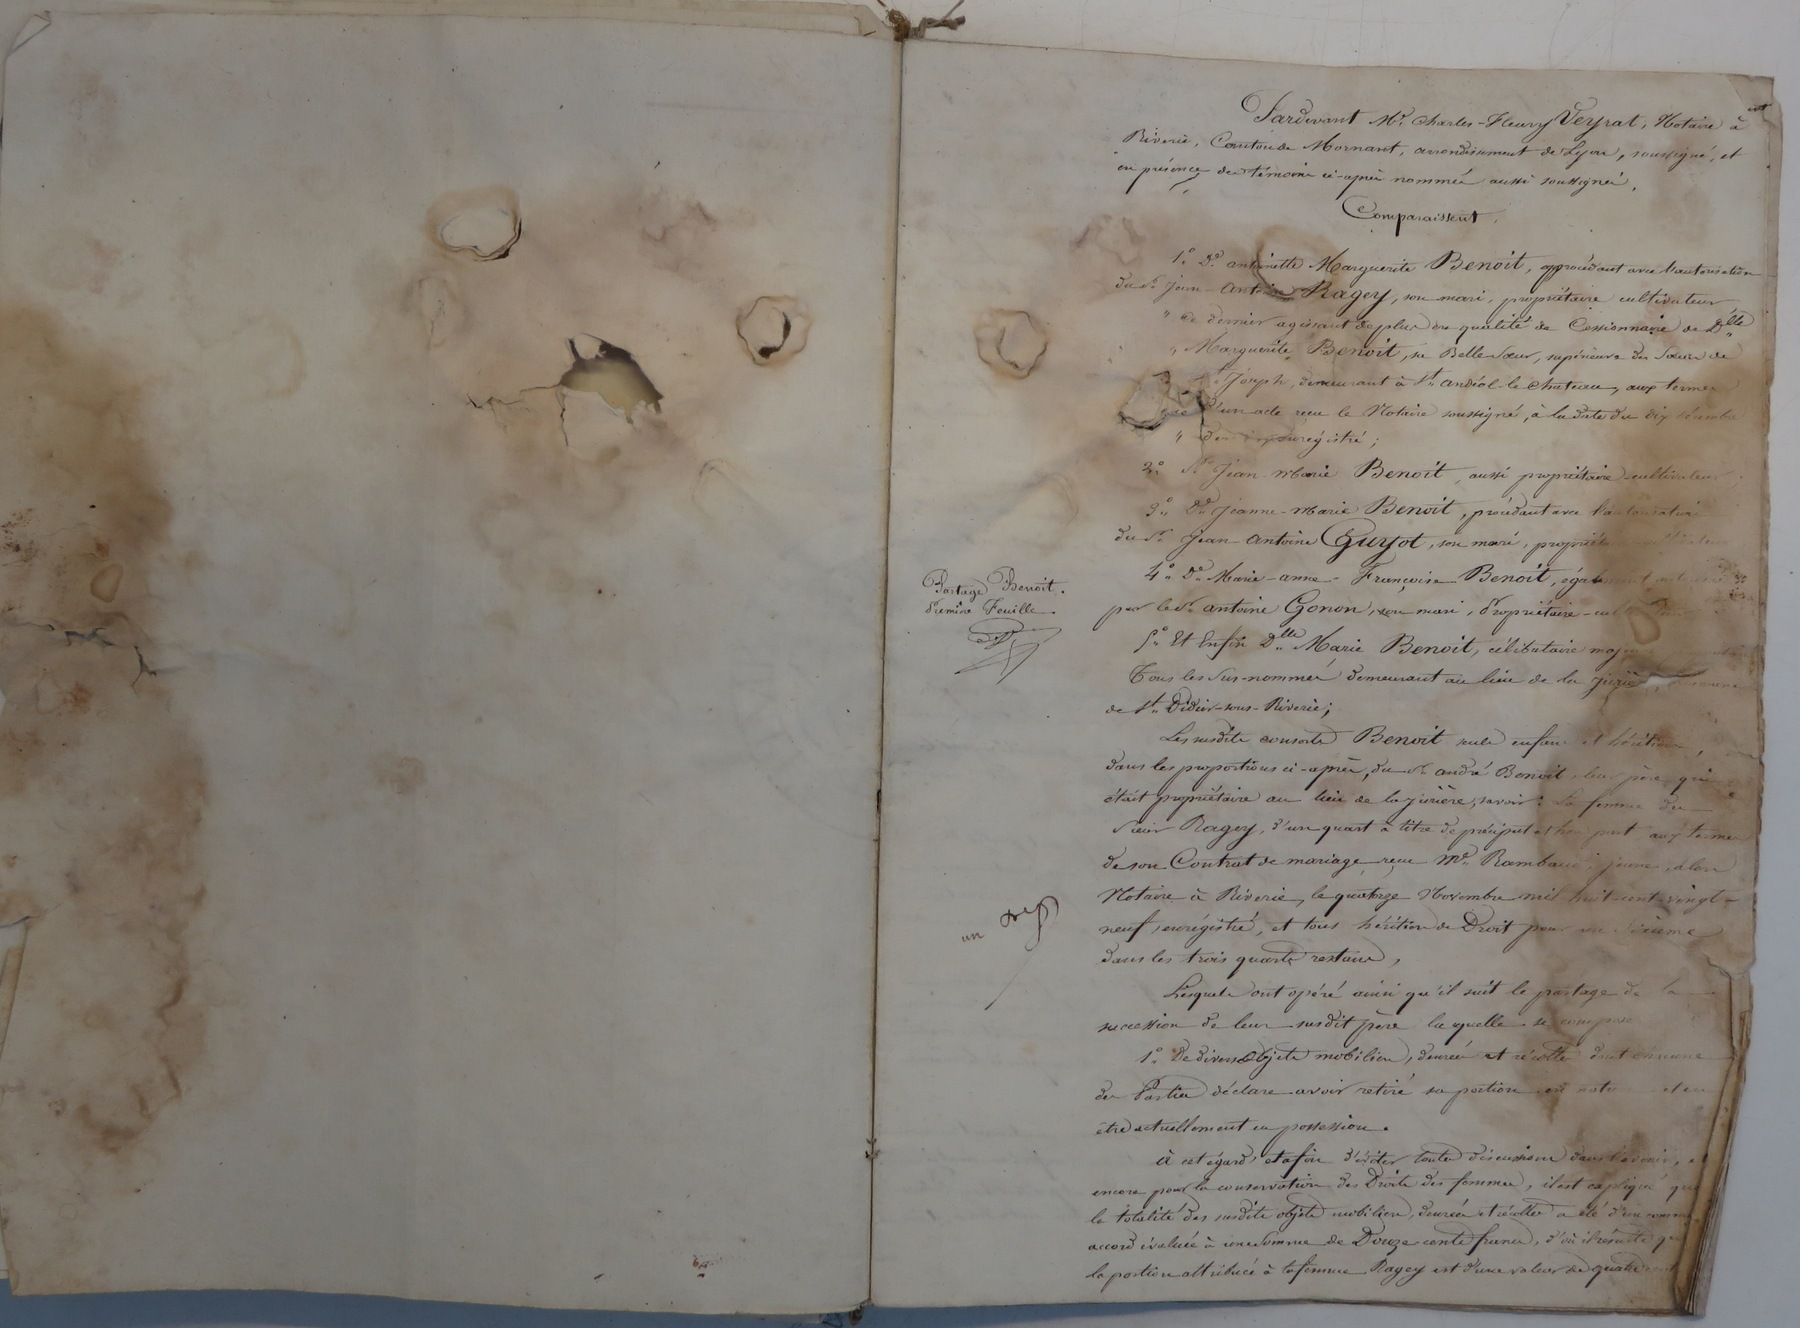 Pardevant Me. Charles-Fleury Veyrat, Notaire à
Riverie, Canton de Mornant, arrondissement de Lyon, soussigné, et
en présence des témoins ci-après nommés aussi soussignés,
Comparaissent,
1° De. antoinette Marguerite Benoit, procédant avec l'autorisation
du Sr. Jean-Antoine Ragey, son mari, propriétaire cultivateur
" ce dernier agissant de plus en qualité de Cessionnaire de Dlle
" Marguerite Benoit, sa Belle Sœur, supérieure des Sœurs de
St. Joseph, demeurant à St. andéol-le-Chateau, aux termes
d'un acte reçu le Notaire soussigné, à la date du dix
" enregistré;
2° Sr. Jean-Marie Benoit, aussi propriétaire-cultivateur
3° De. Jeanne-Marie Benoit, procédant avec l'autorisation
du Sr. Jean-Antoine Guyot, son mari, propriétaire
4° De. Marie-anne-Françoise Benoit, également autorisée
par le Sr. antoine Gonon, son mari, Propriétaire-
Partage Benoit.
Premiere Feuille.
5° Et Enfin Dlle Marie Benoit, célibataire majeure
Tous les Sus-nommés demeurant au lieu de la Jurière,
de St. Didier-sous-Riverie;
Les susdits consorts Benoit seuls enfans et héritiers,
dans les proportions ci-après, du Sr. andré Benoit, leur père qui
était propriétaire au lieu de la Jurière, savoir: La femme du
Sieur Ragey, d'un quart à titre de préciput et hors part aux termes
de son Contrat de mariage reçu Me. Rambaud jeune, alors
Notaire à Riverie, le quatorze Novembre mil huit-cent-vingt-
neuf, enrégistré, et tous héritiers de Droit pour un sixième
dans les trois quarts restans,
Lesquels ont opéré ainsi qu'il suit le partage de la
succession de leur susdit père laquelle se compose
1° De divers objets mobiliers, denrées et récoltes dont chacune
des Parties déclare avoir retiré sa portion en nature et en
être actuellement en possession.
à cet égard et afin d'éviter toutes discussions dans l'avenir, et
encore pour la conservation des Droits des femmes, il est expliqué que
la totalité des susdits objets mobiliers, denrées et récoltes a été d'un commun
accord évaluée à une Somme de Douze cents francs, d'où il résulte que
la portion attribuée à la femme Ragey est d'une valeur de quatre cent